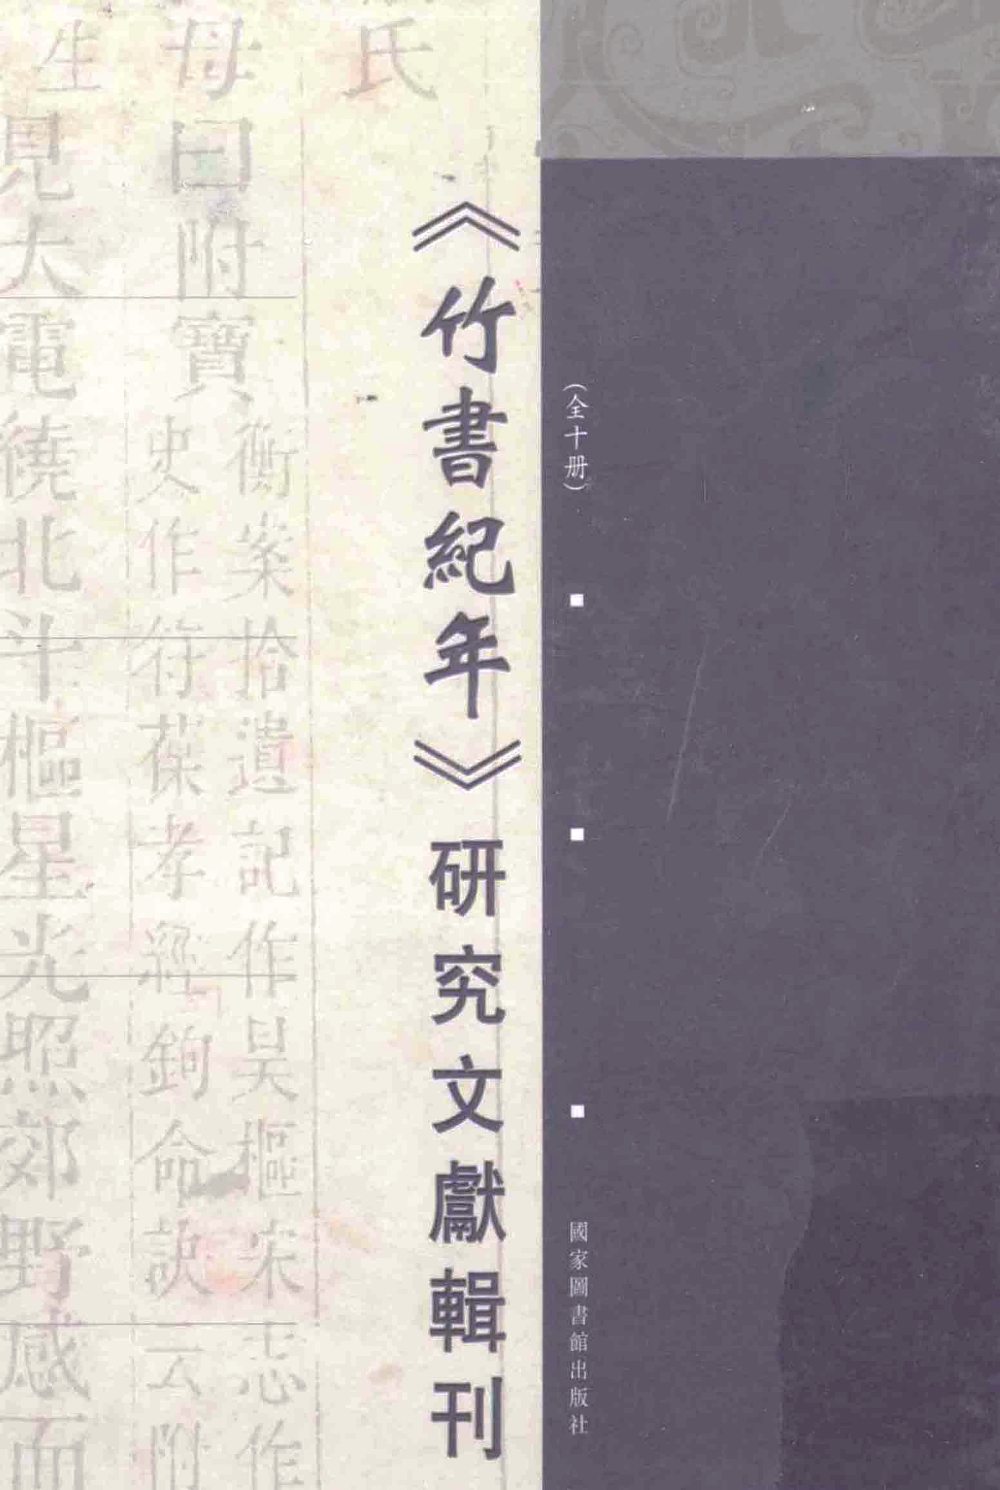 《竹書紀年》研究文獻輯刊
(全十册)
國家圖書館出版社
氏
母曰附寶
衡案拾遺記作昊樞宋志作
史作符葆孝經鉤命訣云附
生見大電繞北斗樞星光照郊野感而